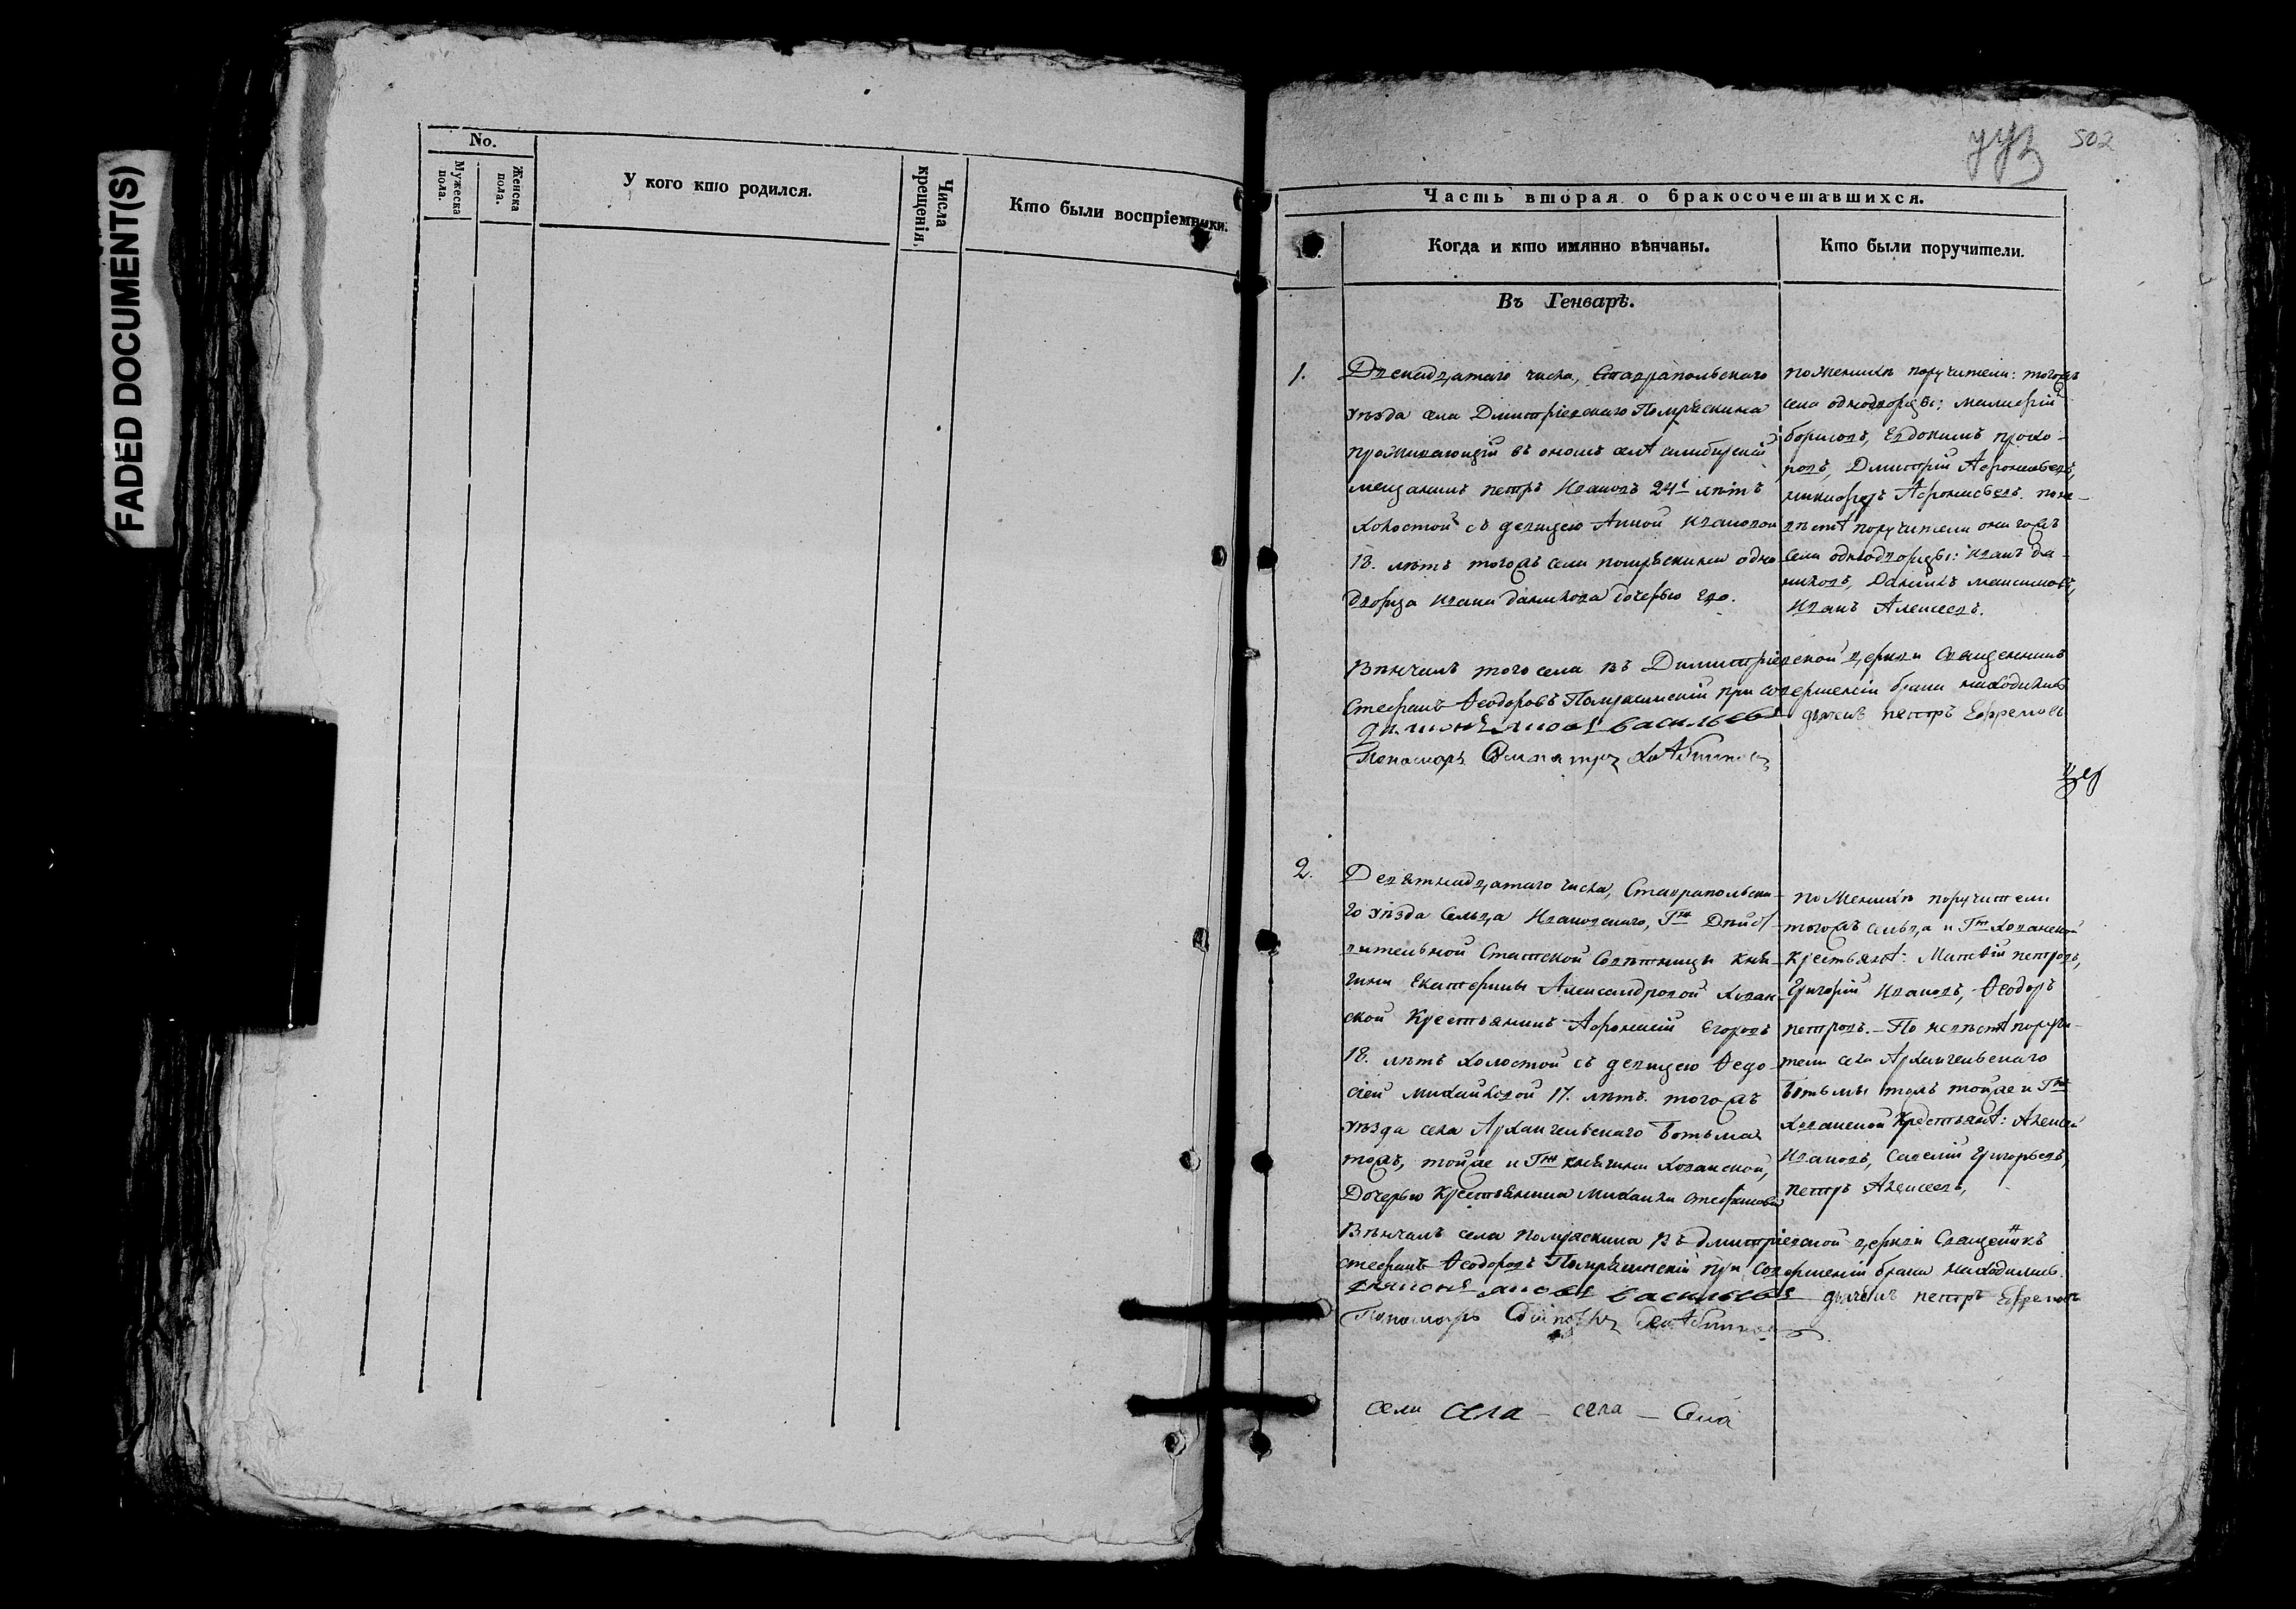 FADED DOCUMENT(S)
No.
Мужеска пола.
Женска пола.
У кого кто родился.
Числа крещенія.
Кто были воспріемники.
502
Часть вторая о бракосочетавшихся.
Когда и кто имянно вѣнчаны.
Кто были поручители.
Въ Генварѣ.
1.
Двенадцатаго числа, Ставрапольскаго
уѣзда села Дмитріевскаго Помряскина
проживающій въ ономъ селѣ симбирской
мещанинъ петръ Ивановъ 24 лѣтъ
холостой съ девицею Анной Ивановой
18. лѣтъ тогожъ села помряскина одно
дворца ивана данилова дочерью ево.
по женихѣ поручители: тогожъ
села однодворцы:
борисовъ, Евдокимъ прохо-
ровъ, Дмитрій Афонасьевъ,
никифоръ Афонасьевъ. поне-
вѣстѣ поручители они тожъ
села однодворцы: иванъ да-
ниловъ, Данилъ максимовъ,
Иванъ Алексеевъ.
Вѣнчалъ того села въ Димитріевской церкви Священникъ
Стефанъ Ѳеодоровъ Помряскинскій при совершеніи брака находились
васильевъ дьячекъ петръ Ефремовъ
Пономарь
2.
Девятнадцатаго числа, Ставрапольска-
го уѣзда Сельца Ивановскаго, Гжи Дѣйст-
вительной Статской Советницы Кня-
гини Екатерины Александровой Хован-
ской Крестьянинъ Афонасій Егоровъ
18. лѣтъ холостой съ девицею Ѳедо-
сіей михайловой 17. лѣтъ. тогожъ
уѣзда села Архангельскаго Ботьма
тожъ, тойже и Гжи княгини Хованской,
Дочерью Крестьянина Михаила стефанова
по Женихѣ поручители
тогожъ сельца и Гжи Хованской
Крестьянѣ: Матвѣй петровъ,
Григорій Ивановъ, Ѳеодоръ
петровъ. – По невѣстѣ поручи-
тели села Архангельскаго
Ботьмы тожъ тойже и Гжи
Хованской Крестьянѣ: Алексей
Ивановъ, Савелій Григорьевъ,
петръ Алексеевъ,
Вѣнчалъ села помряскина въ дмитріевской церкви Священникъ
стефанъ Ѳеодоровъ Помряскинскій при совершеніи брака находились.
васильевъ дьячекъ петръ Ефремовъ
Пономарь
села села – села – Села